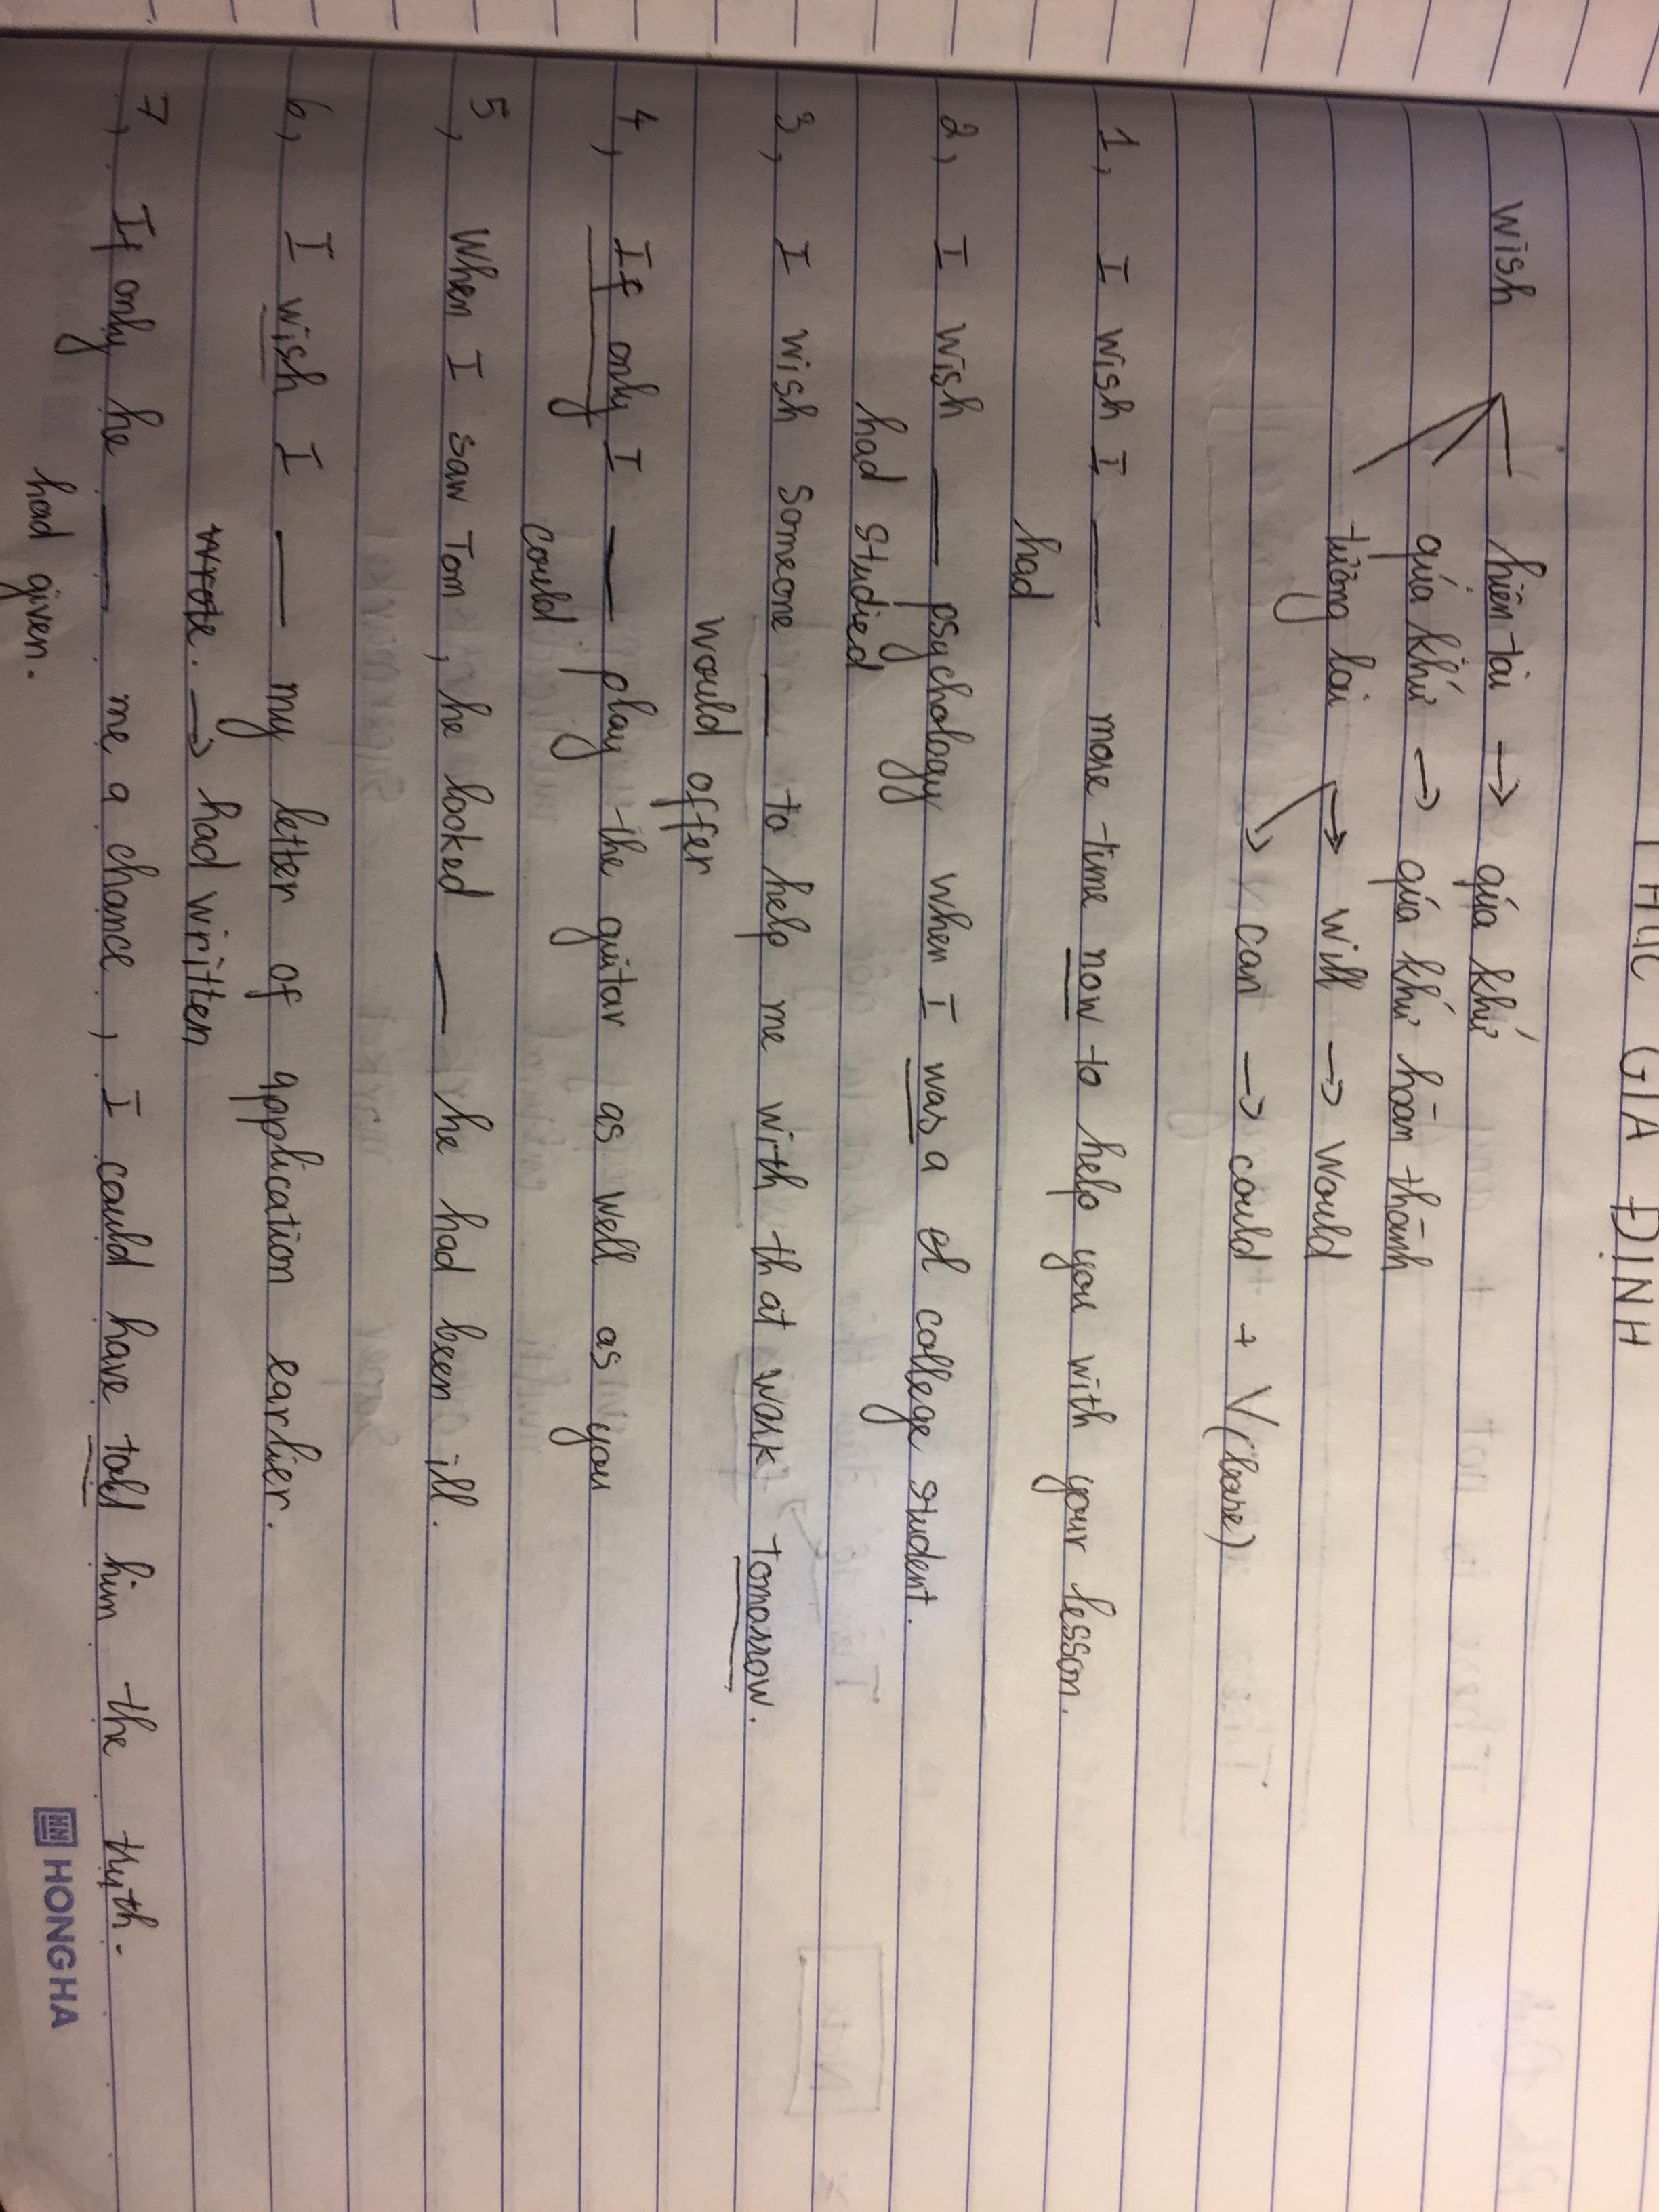 GIA ĐÌNH
wish hiện tại → qúa khứ
qúa khứ → qúa khứ hoàn thành
tương lai → will → would
→ can → could + V(bare)
1, I wish I ___ more time now to help you with your lesson.
had
2, I wish ___ psychology when I was a college student.
had studied
3, I wish someone ___ to help me with that work tomorrow.
would offer
4, If only I ___ play the guitar as well as you
could
5, When I saw Tom, he looked ___ he had been ill.
6, I wish I ___ my letter of application earlier.
wrote. → had written
7, If only he ___ me a chance, I could have told him the truth.
had given.
HONG HA